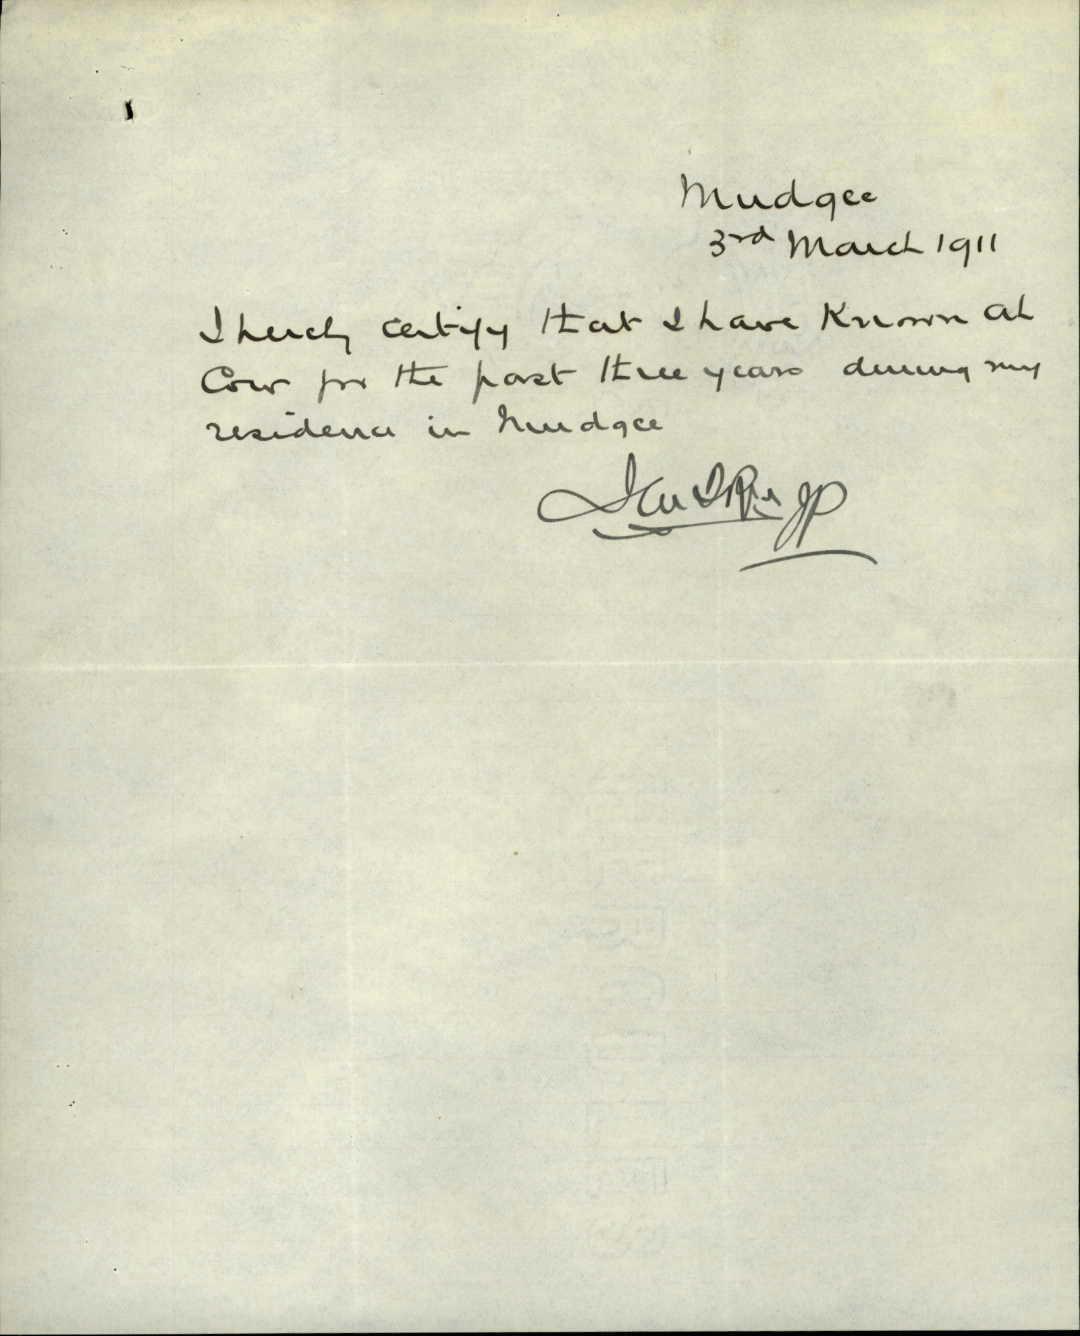 Mudgee
3rd March 1911
I hereby certify that I have Known Ah
Cow for the past three years during my
residence in Mudgee
JP